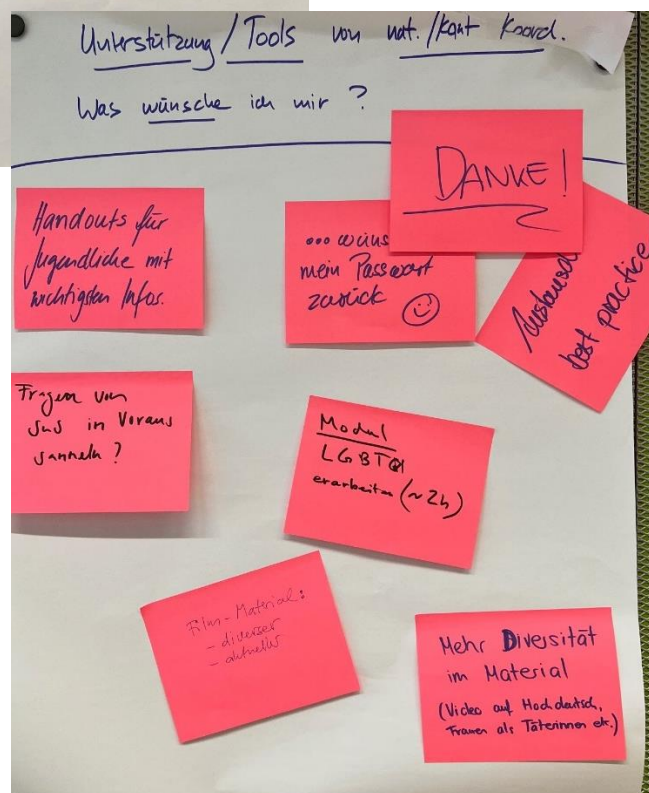 Unterstützung / Tools von nat. / kant Koord.
Was wünsche ich mir ?
DANKE !
Handouts für
Jugendliche mit
wichtigsten Infos.
... wüns
mein Passwort
zurück ☺
Austausch
best practice
Fragen von
SuS in Voraus
sammeln ?
Modul
LGBTQI
erarbeiten (~2h)
Film-Material:
- diverser
- aktueller
Mehr Diversität
im Material
(Video auf Hochdeutsch,
Frauen als Täterinnen etc.)